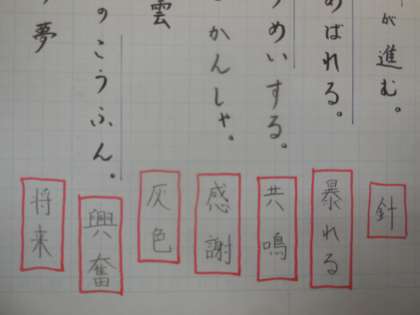 が進む。
針
あばれる。
暴れる
めいする。
共鳴
かんしゃ。
感謝
雲
灰色
のこうふん。
興奮
夢
将来